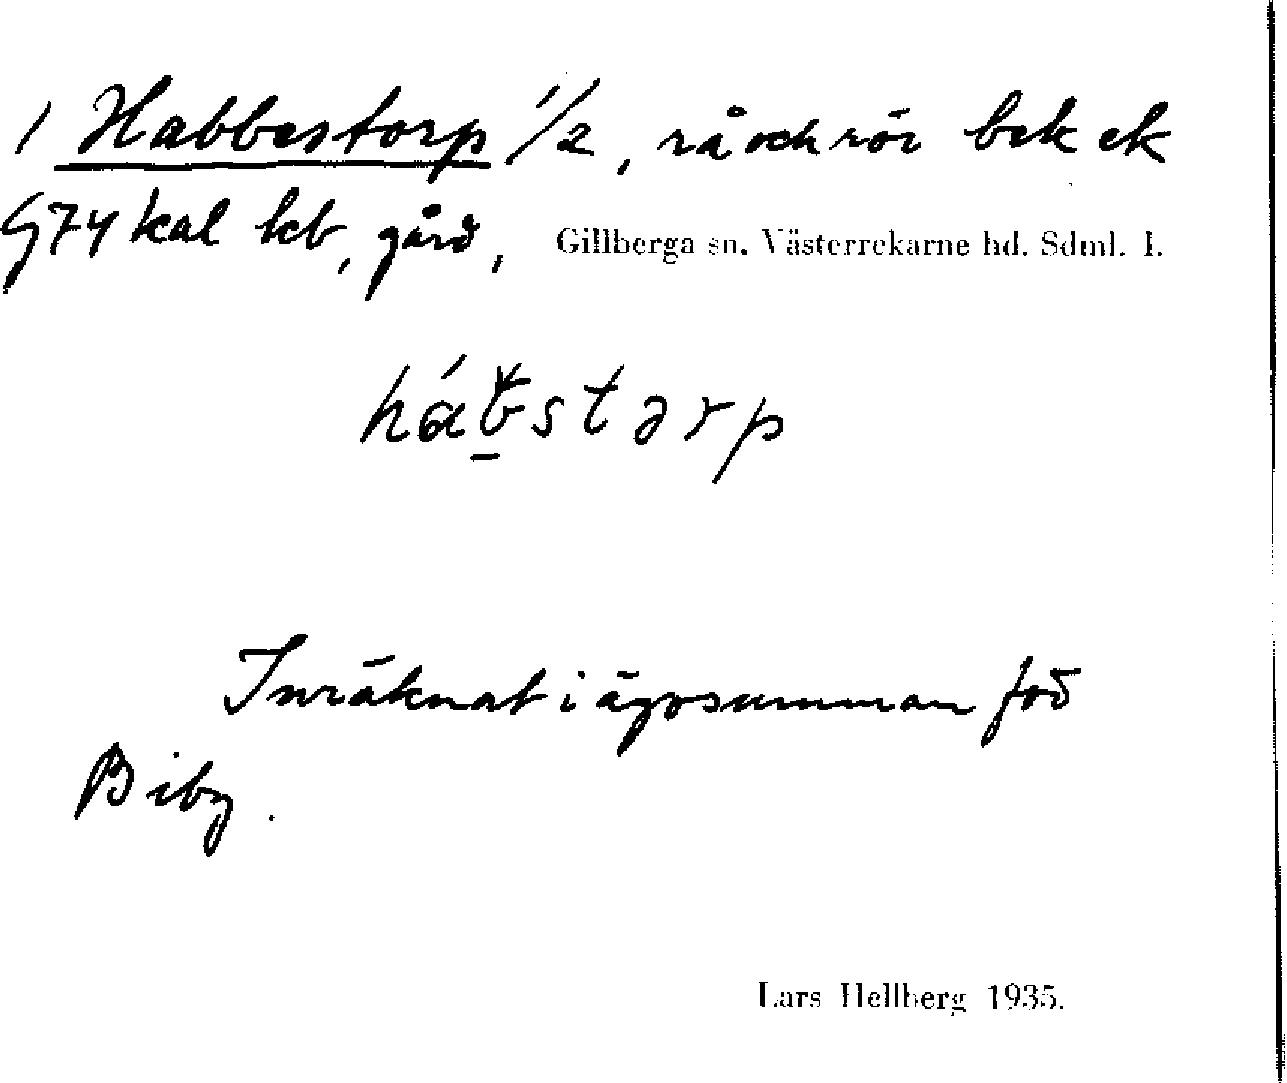 1 Habbestorp 1/2, rå och rör bek ek
G74 kal kb, gård, Gillberga sn. Västerrekarne hd. Sdml. I.
hábstərp
Inräknat i ägosumman för
Biby.
Lars Hellberg 1935.